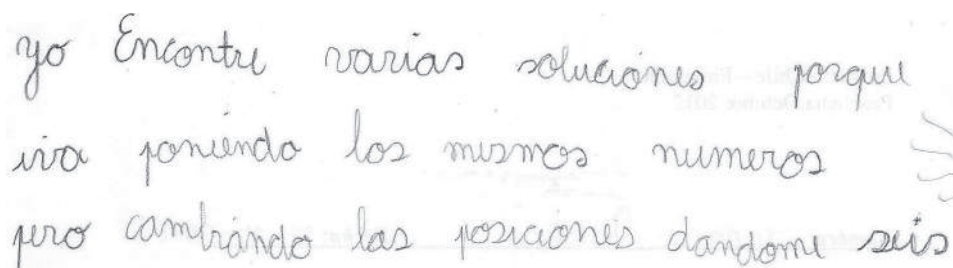 yo Encontre varias soluciones porque
iva poniendo los mismos numeros
pero cambiando las posiciones dandome seis